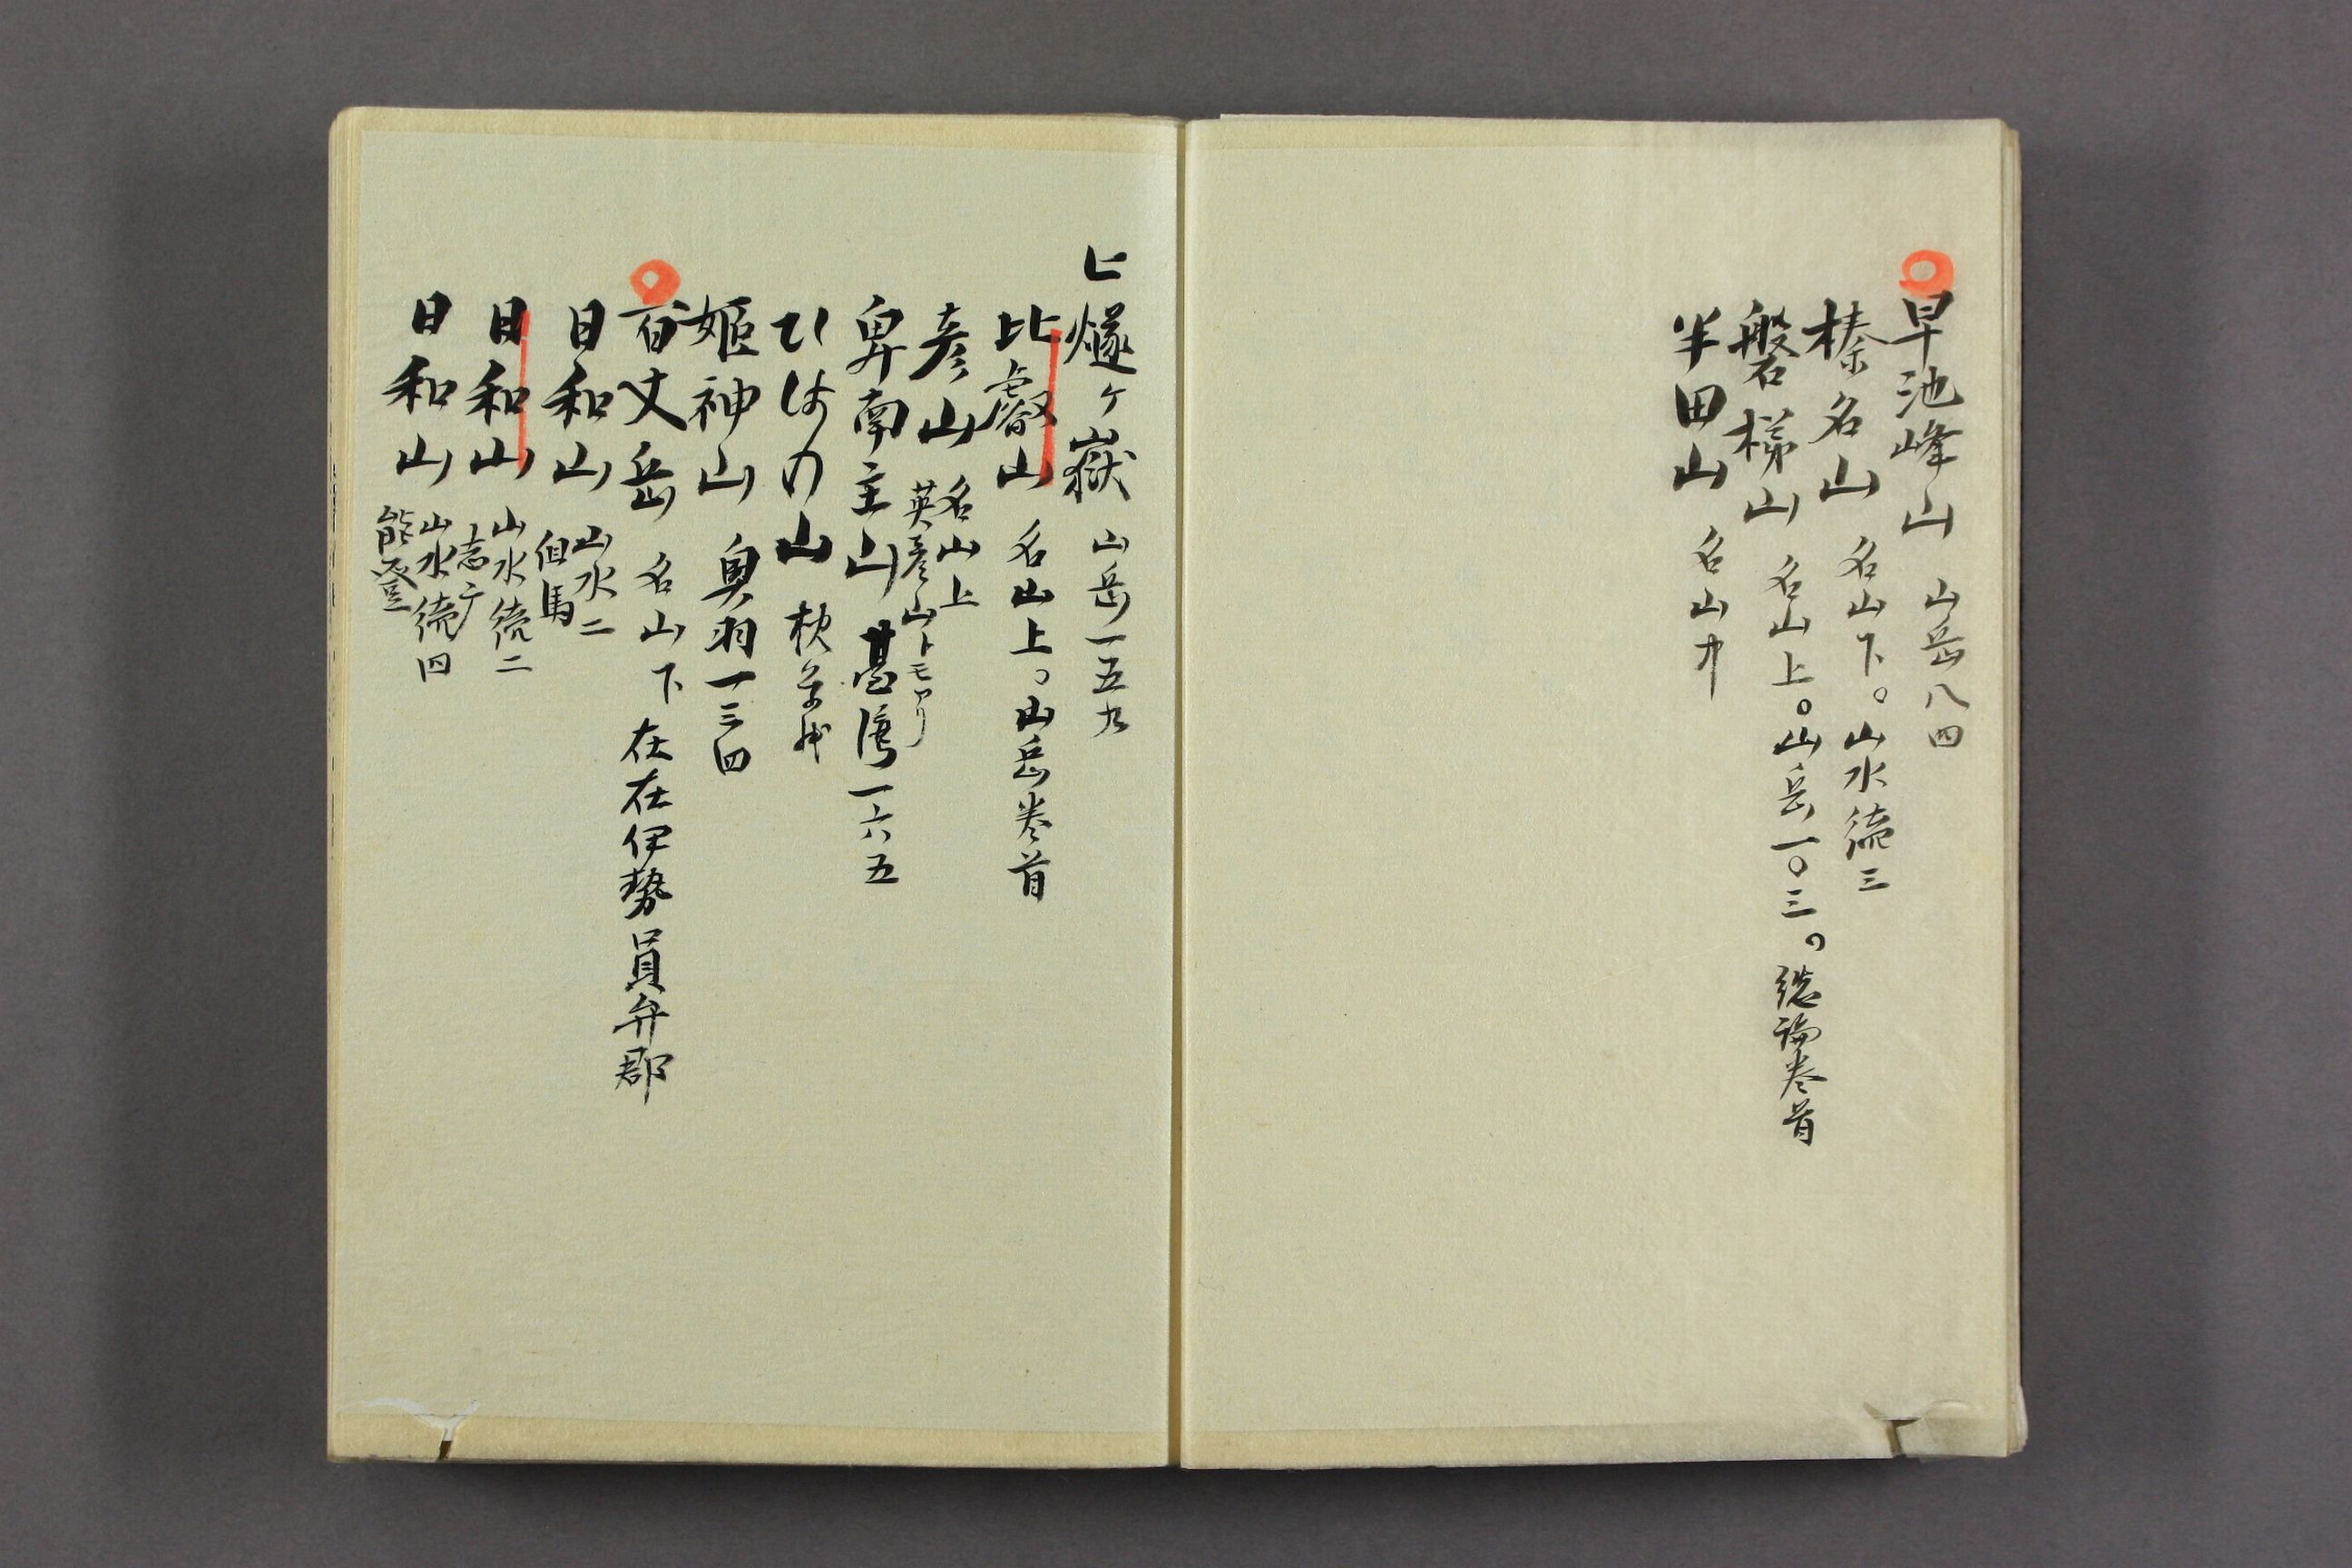 早池峰山 山岳八四
榛名山 名山下。山水続三
磐梯山 名山上。山岳一〇三。総論巻首
半田山 名山中
ヒ
燧ヶ嶽 山岳一五九
比叡山 名山上。山岳巻首
彦山 名山上
英彦山トモアリ
卑南主山 臺湾一六五
山
姫神山 奥羽一三四
百丈岳 名山下 在在伊勢員弁郡
日和山 山水二
但馬
日和山 山水続二
志广
日和山 山水続四
能登